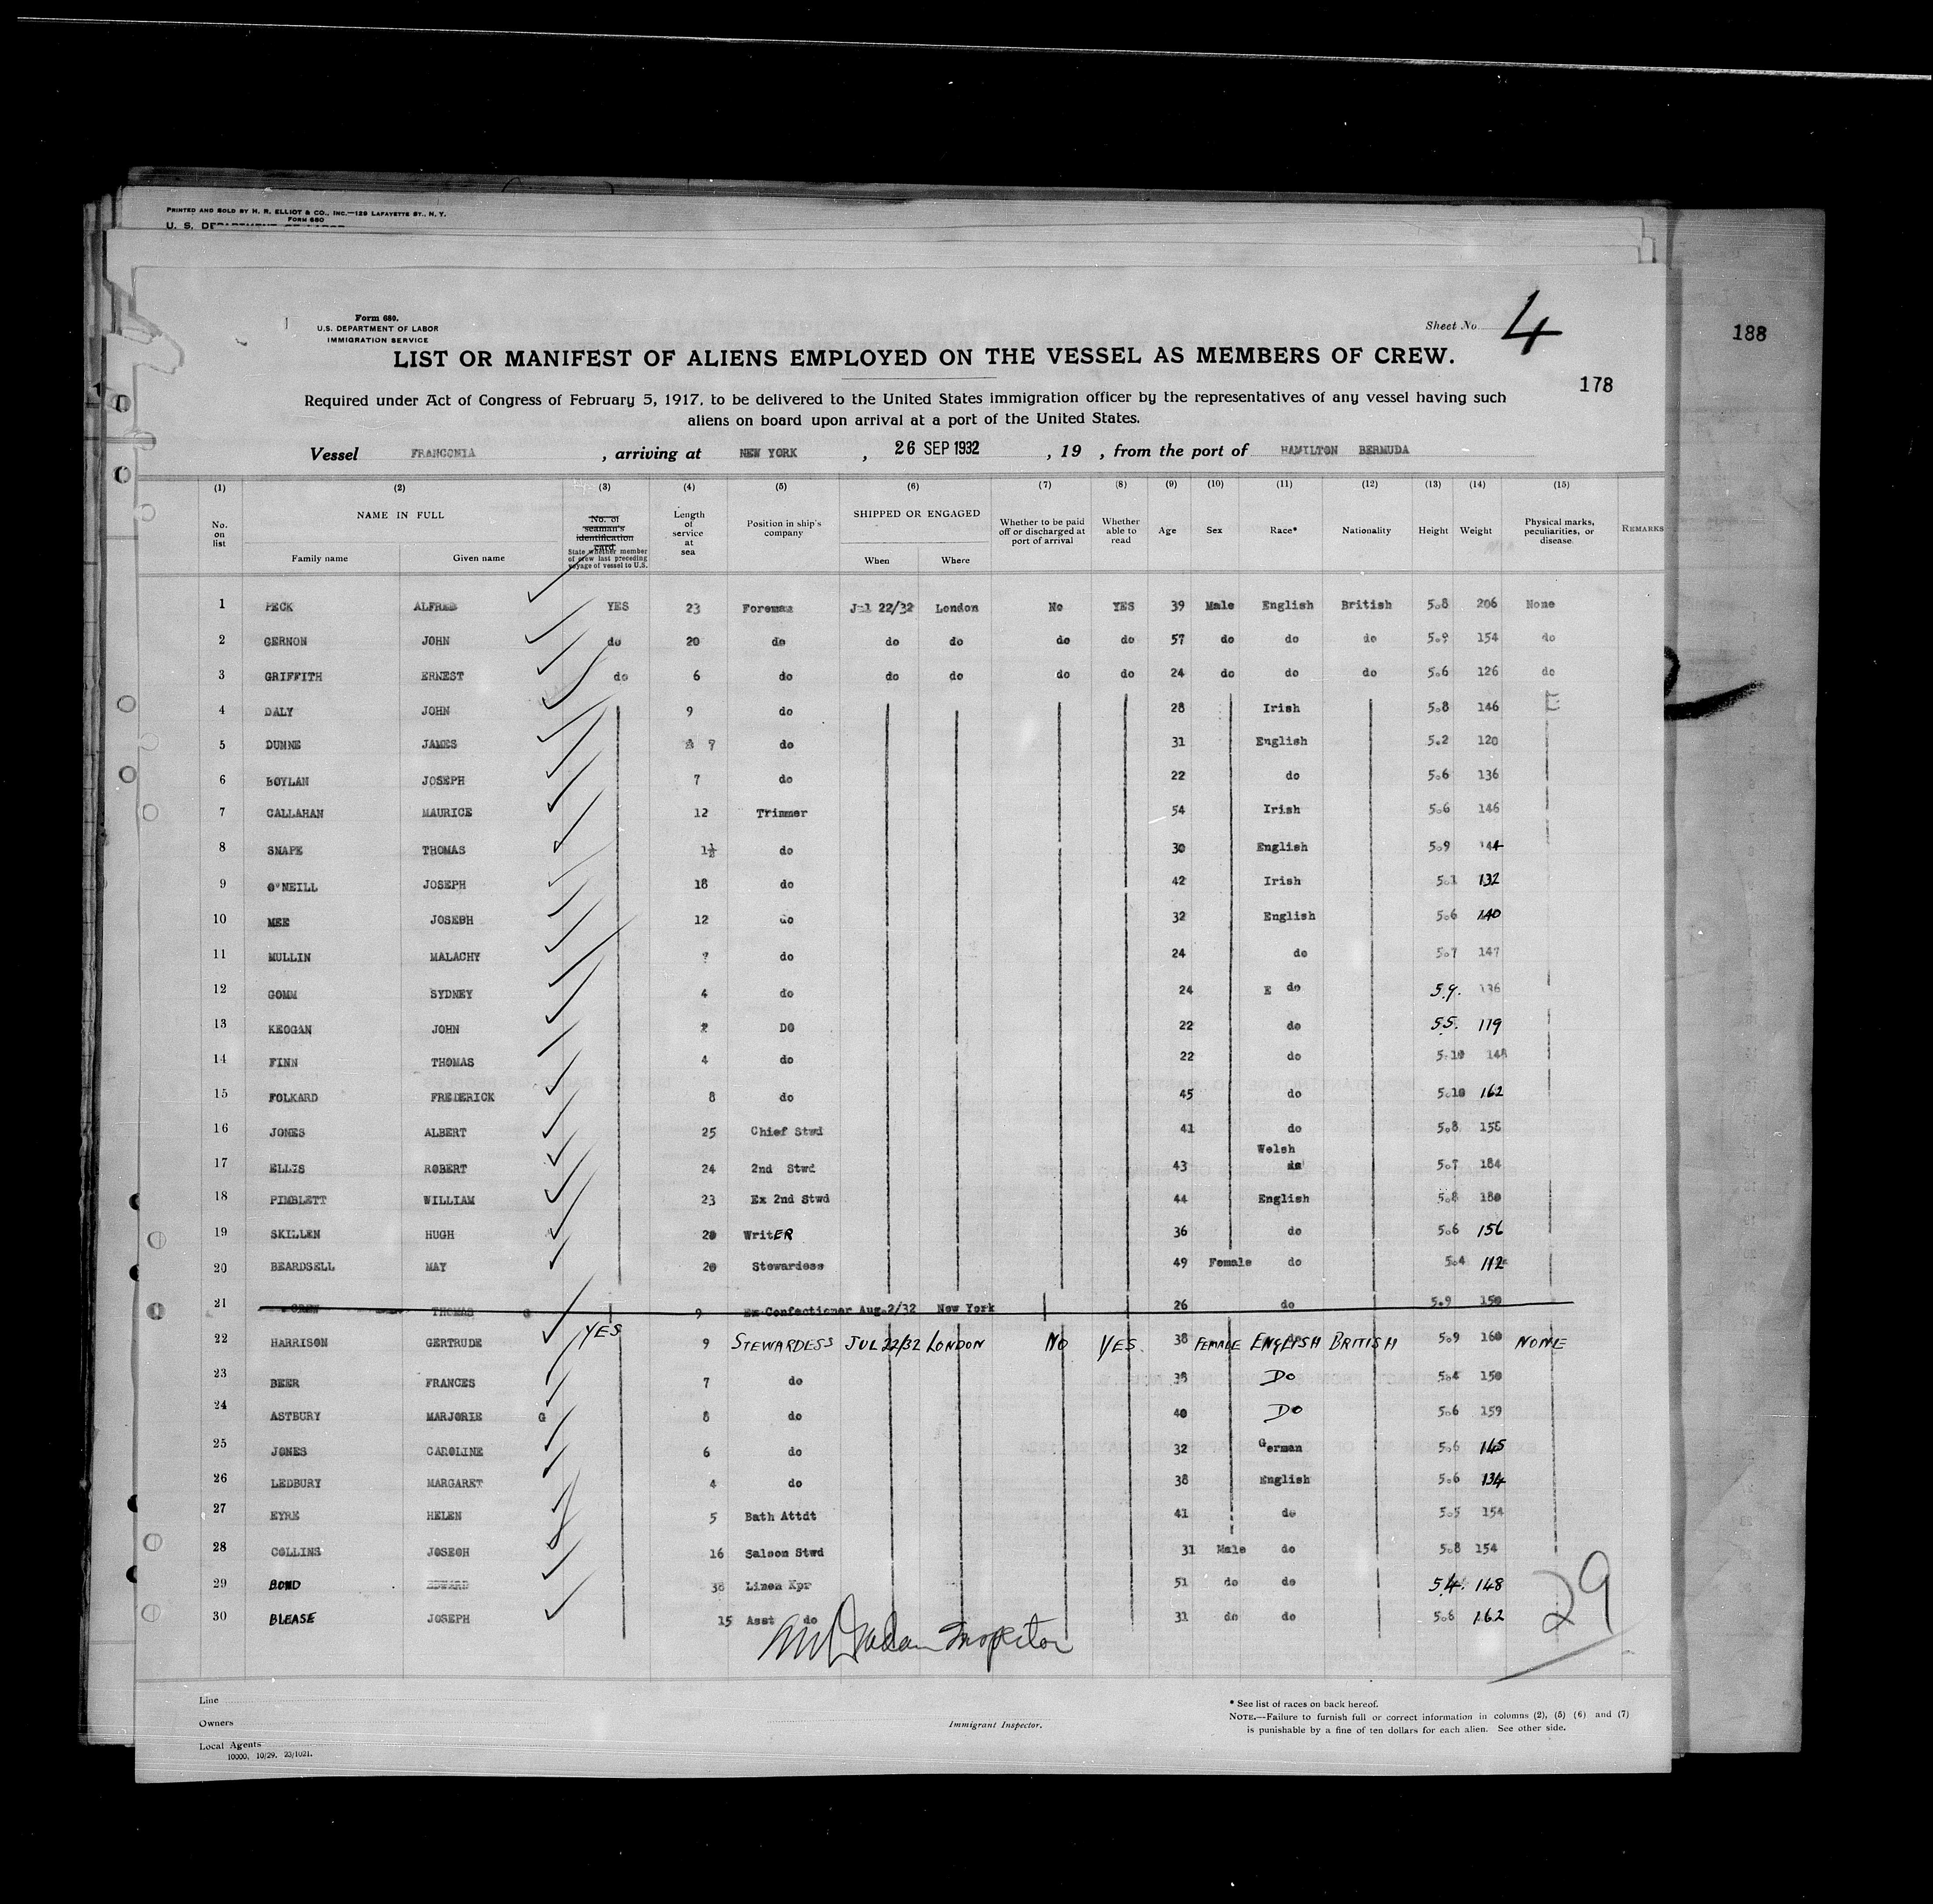 PRINTED AND SOLD BY H. R. ELLIOT & CO., INC.—129 LAFAYETTE ST., N. Y.
FORM 680
U. S. DEPARTMENT OF LABOR
188
Form 680.
U.S. DEPARTMENT OF LABOR
IMMIGRATION SERVICE
Sheet No. 4
LIST OR MANIFEST OF ALIENS EMPLOYED ON THE VESSEL AS MEMBERS OF CREW.
178
Required under Act of Congress of February 5, 1917, to be delivered to the United States immigration officer by the representatives of any vessel having such
aliens on board upon arrival at a port of the United States.
Vessel FRANCONIA , arriving at NEW YORK , 26 SEP 1932 , 19 , from the port of HAMILTON BERMUDA
(1) (2) (3) (4) (5) (6) (7) (8) (9) (10) (11) (12) (13) (14) (15)
No. on list NAME IN FULL Family name Given name No. of seaman's identification card State whether member of crew last preceding voyage of vessel to U.S. Length of service at sea Position in ship's company SHIPPED OR ENGAGED When Where Whether to be paid off or discharged at port of arrival Whether able to read Age Sex Race* Nationality Height Weight Physical marks, peculiarities, or disease. REMARKS
1 PECK ALFRED YES 23 Foreman Jul 22/32 London No YES 39 Male English British 5.8 206 None
2 GERNON JOHN do 20 do do do do do 57 do do do 5.9 154 do
3 GRIFFITH ERNEST do 6 do do do do do 24 do do do 5.6 126 do
4 DALY JOHN 9 do 28 Irish 5.8 146
5 DUNNE JAMES 7 do 31 English 5.2 120
6 BOYLAN JOSEPH 7 do 22 do 5.6 136
7 CALLAHAN MAURICE 12 Trimmer 54 Irish 5.6 146
8 SNAPE THOMAS 1½ do 30 English 5.9 144
9 O'NEILL JOSEPH 18 do 42 Irish 5.1 132
10 MEE JOSEPH 12 do 32 English 5.6 140
11 MULLIN MALACHY do 24 do 5.7 147
12 GOMM SYDNEY 4 do 24 E do 5.9. 136
13 KEOGAN JOHN DO 22 do 5.5. 119
14 FINN THOMAS 4 do 22 do 5.10 148
15 FOLKARD FREDERICK 8 do 45 do 5.10 162
16 JONES ALBERT 25 Chief Stwd 41 do 5.8 158
17 ELLIS ROBERT 24 2nd Stwd 43 Welsh 5.7 184
18 PIMBLETT WILLIAM 23 Ex 2nd Stwd 44 English 5.8 180
19 SKILLEN HUGH 20 WritER 36 do 5.6 156
20 BEARDSELL MAY 20 Stewardess 49 Female do 5.4 112
21 THOMAS G 9 Ex Confectioner Aug 2/32 New York 26 do 5.9 150
22 HARRISON GERTRUDE YES 9 STEWARDESS JUL 22/32 LONDON NO YES. 38 FEMALE ENGLISH BRITISH 5.9 160 NONE
23 BEER FRANCES 7 do 38 DO 5.4 150
24 ASTBURY MARJORIE G 8 do 40 DO 5.6 159
25 JONES CAROLINE 6 do 32 German 5.6 145
26 LEDBURY MARGARET 4 do 38 English 5.6 134
27 EYRE HELEN 5 Bath Attdt 41 do 5.5 154
28 COLLINS JOSEOH 16 Saloon Stwd 31 Male do 5.8 154
29 BOND EDWARD 38 Linen Kpr 51 do do 5.4. 148
30 BLEASE JOSEPH 15 Asst do 31 do do 5.6 162
29
Inspector
Line
Owners
Local Agents
10000, 10/29. 23/1021.
Immigrant Inspector.
* See list of races on back hereof.
NOTE.—Failure to furnish full or correct information in columns (2), (5) (6) and (7)
is punishable by a fine of ten dollars for each alien. See other side.